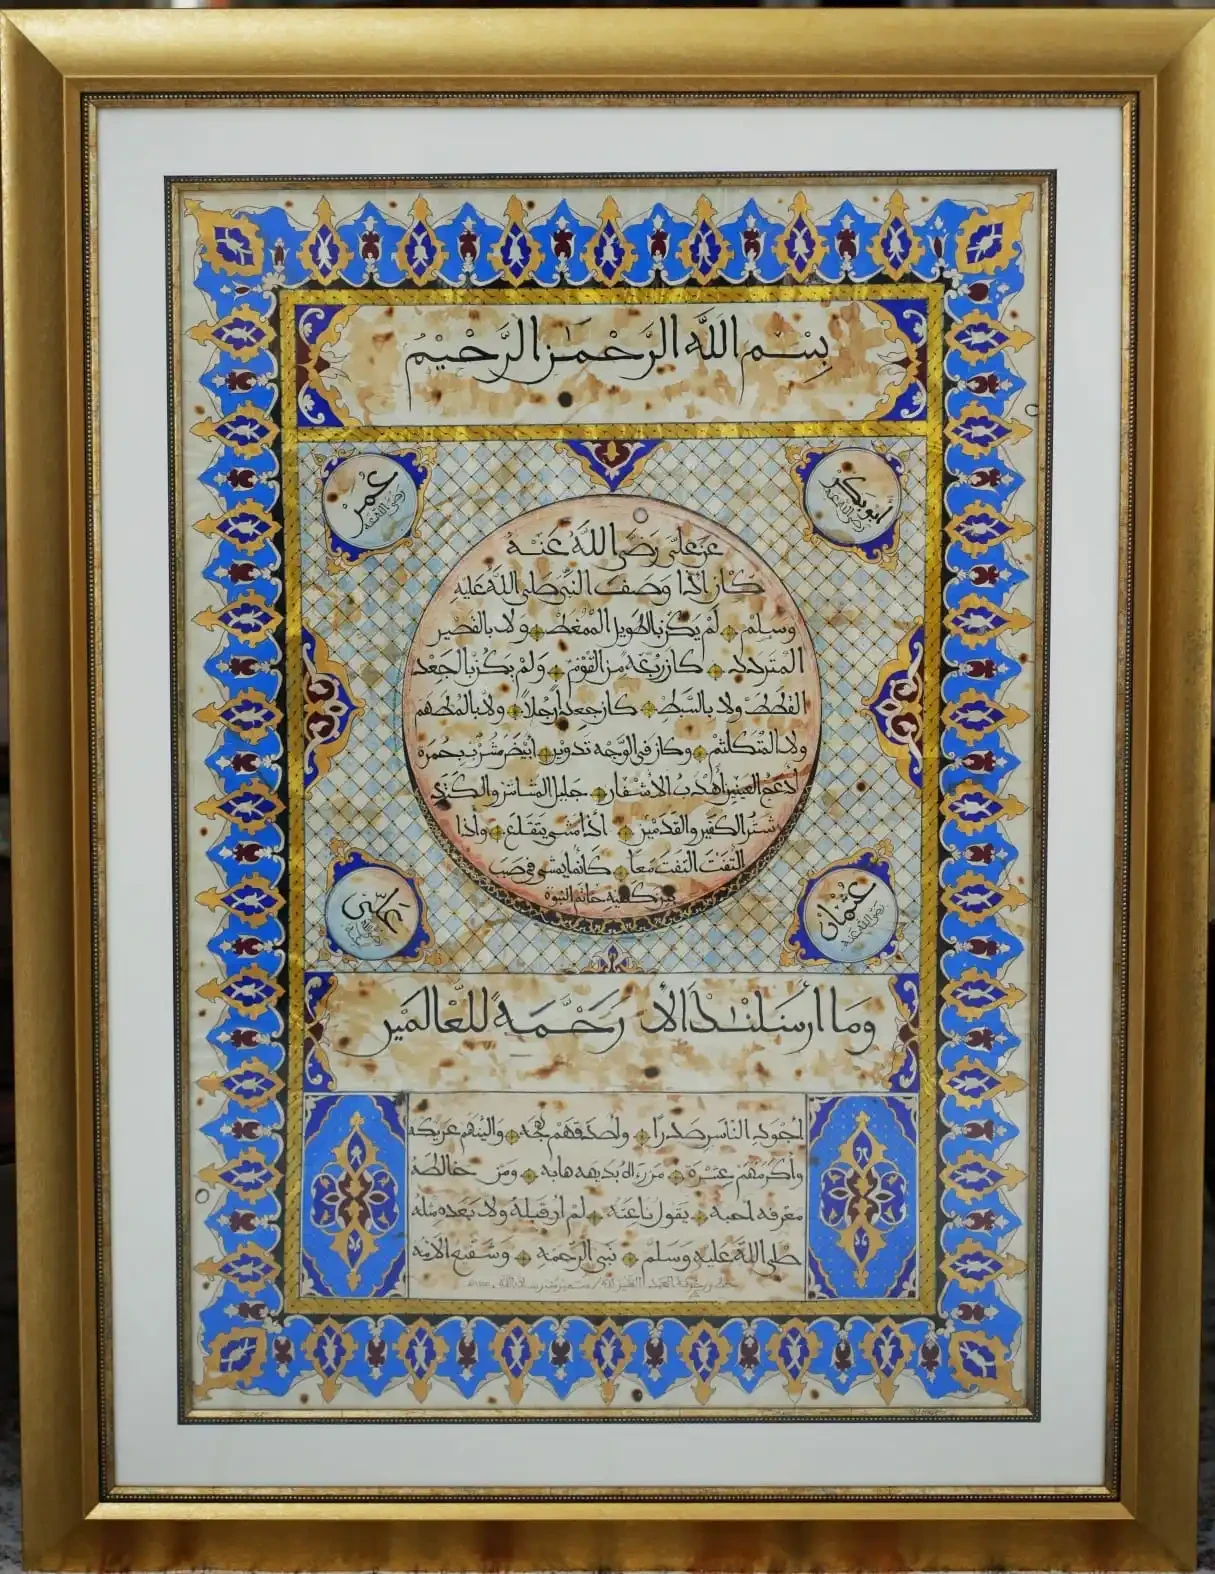 بِسْمِ اللَّهِ الرَّحْمٰنِ الرَّحِيْمِ
أَبُو بَكْرْ
رَضِيَ اللَّهُ عَنْهُ
عُمَرْ
رَضِيَ اللَّهُ عَنْهُ
عَنْ عَلِيٍّ رَضِيَ اللَّهُ عَنْهُ
كَانَ إِذَا وَصَفَ النَّبِيَّ صَلَّى اللَّهُ عَلَيْهِ
وَسَلَّمْ لَمْ يَكُنْ بِالطَّوِيلِ الْمُمَّغِطْ وَلَا بِالْقَصِيرِ
الْمُتَرَدِّدِ كَانَ رَبْعَةً مِنَ الْقَوْمِ وَلَمْ يَكُنْ بِالْجَعْدِ
الْقَطَطِ وَلَا بِالسَّبْطِ كَانَ جَعْدًا رَجِلًا وَلَا بِالْمُطَهَّمِ
وَلَا الْمُتَكَلْثَمْ وَكَانَ فِي الْوَجْهِ تَدْوِيرٌ أَبْيَضُ مُشْرَبٌ بِحُمْرَةٍ
أَدْعَجُ الْعَيْنَيْنِ أَهْدَبُ الْأَشْفَارِ جَلِيلُ الْمُشَاشِ وَالْكَتَدِ
شَثْنُ الْكَفَّيْنِ وَالْقَدَمَيْنِ إِذَا مَشَى يَتَقَلَّعُ وَإِذَا
الْتَفَتَ الْتَفَتَ مَعًا كَأَنَّمَا يَمْشِي فِي صَبَبٍ
بَيْنَ كَتِفَيْهِ خَاتَمُ النُّبُوَّةِ
عُثْمَانْ
رَضِيَ اللَّهُ عَنْهُ
عَلِيّ
رَضِيَ اللَّهُ عَنْهُ
وَمَا أَرْسَلْنٰكَ إِلَّا رَحْمَةً لِلْعَالَمِينَ
أَجْوَدُ النَّاسِ صَدْرًا وَأَصْدَقُهُمْ لَهْجَةً وَأَلْيَنُهُمْ عَرِيكَةً
وَأَكْرَمُهُمْ عِشْرَةً مَنْ رَآهُ بَدِيهَةً هَابَهُ وَمَنْ خَالَطَهُ
مَعْرِفَةً أَحَبَّهُ يَقُولُ نَاعِتُهُ لَمْ أَرَ قَبْلَهُ وَلَا بَعْدَهُ مِثْلَهُ
صَلَّى اللَّهُ عَلَيْهِ وَسَلَّمْ نَبِيِّ الرَّحْمَةِ وَشَفِيعِ الْأُمَّةِ